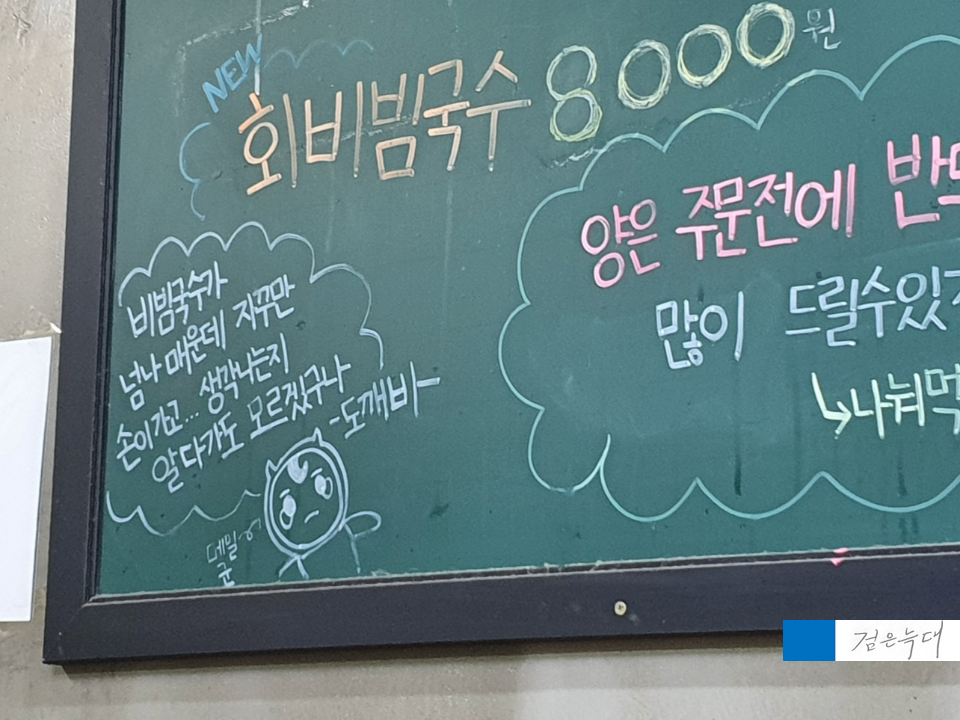 NEW
회비빔국수 8000원
양은 주문전에 반
많이 드릴수있
↳나눠먹
비빔국수가
넘나 매운데 자꾸만
손이가고... 생각나는지
알다가도 모르겠구나
-도깨비-
검은늑대